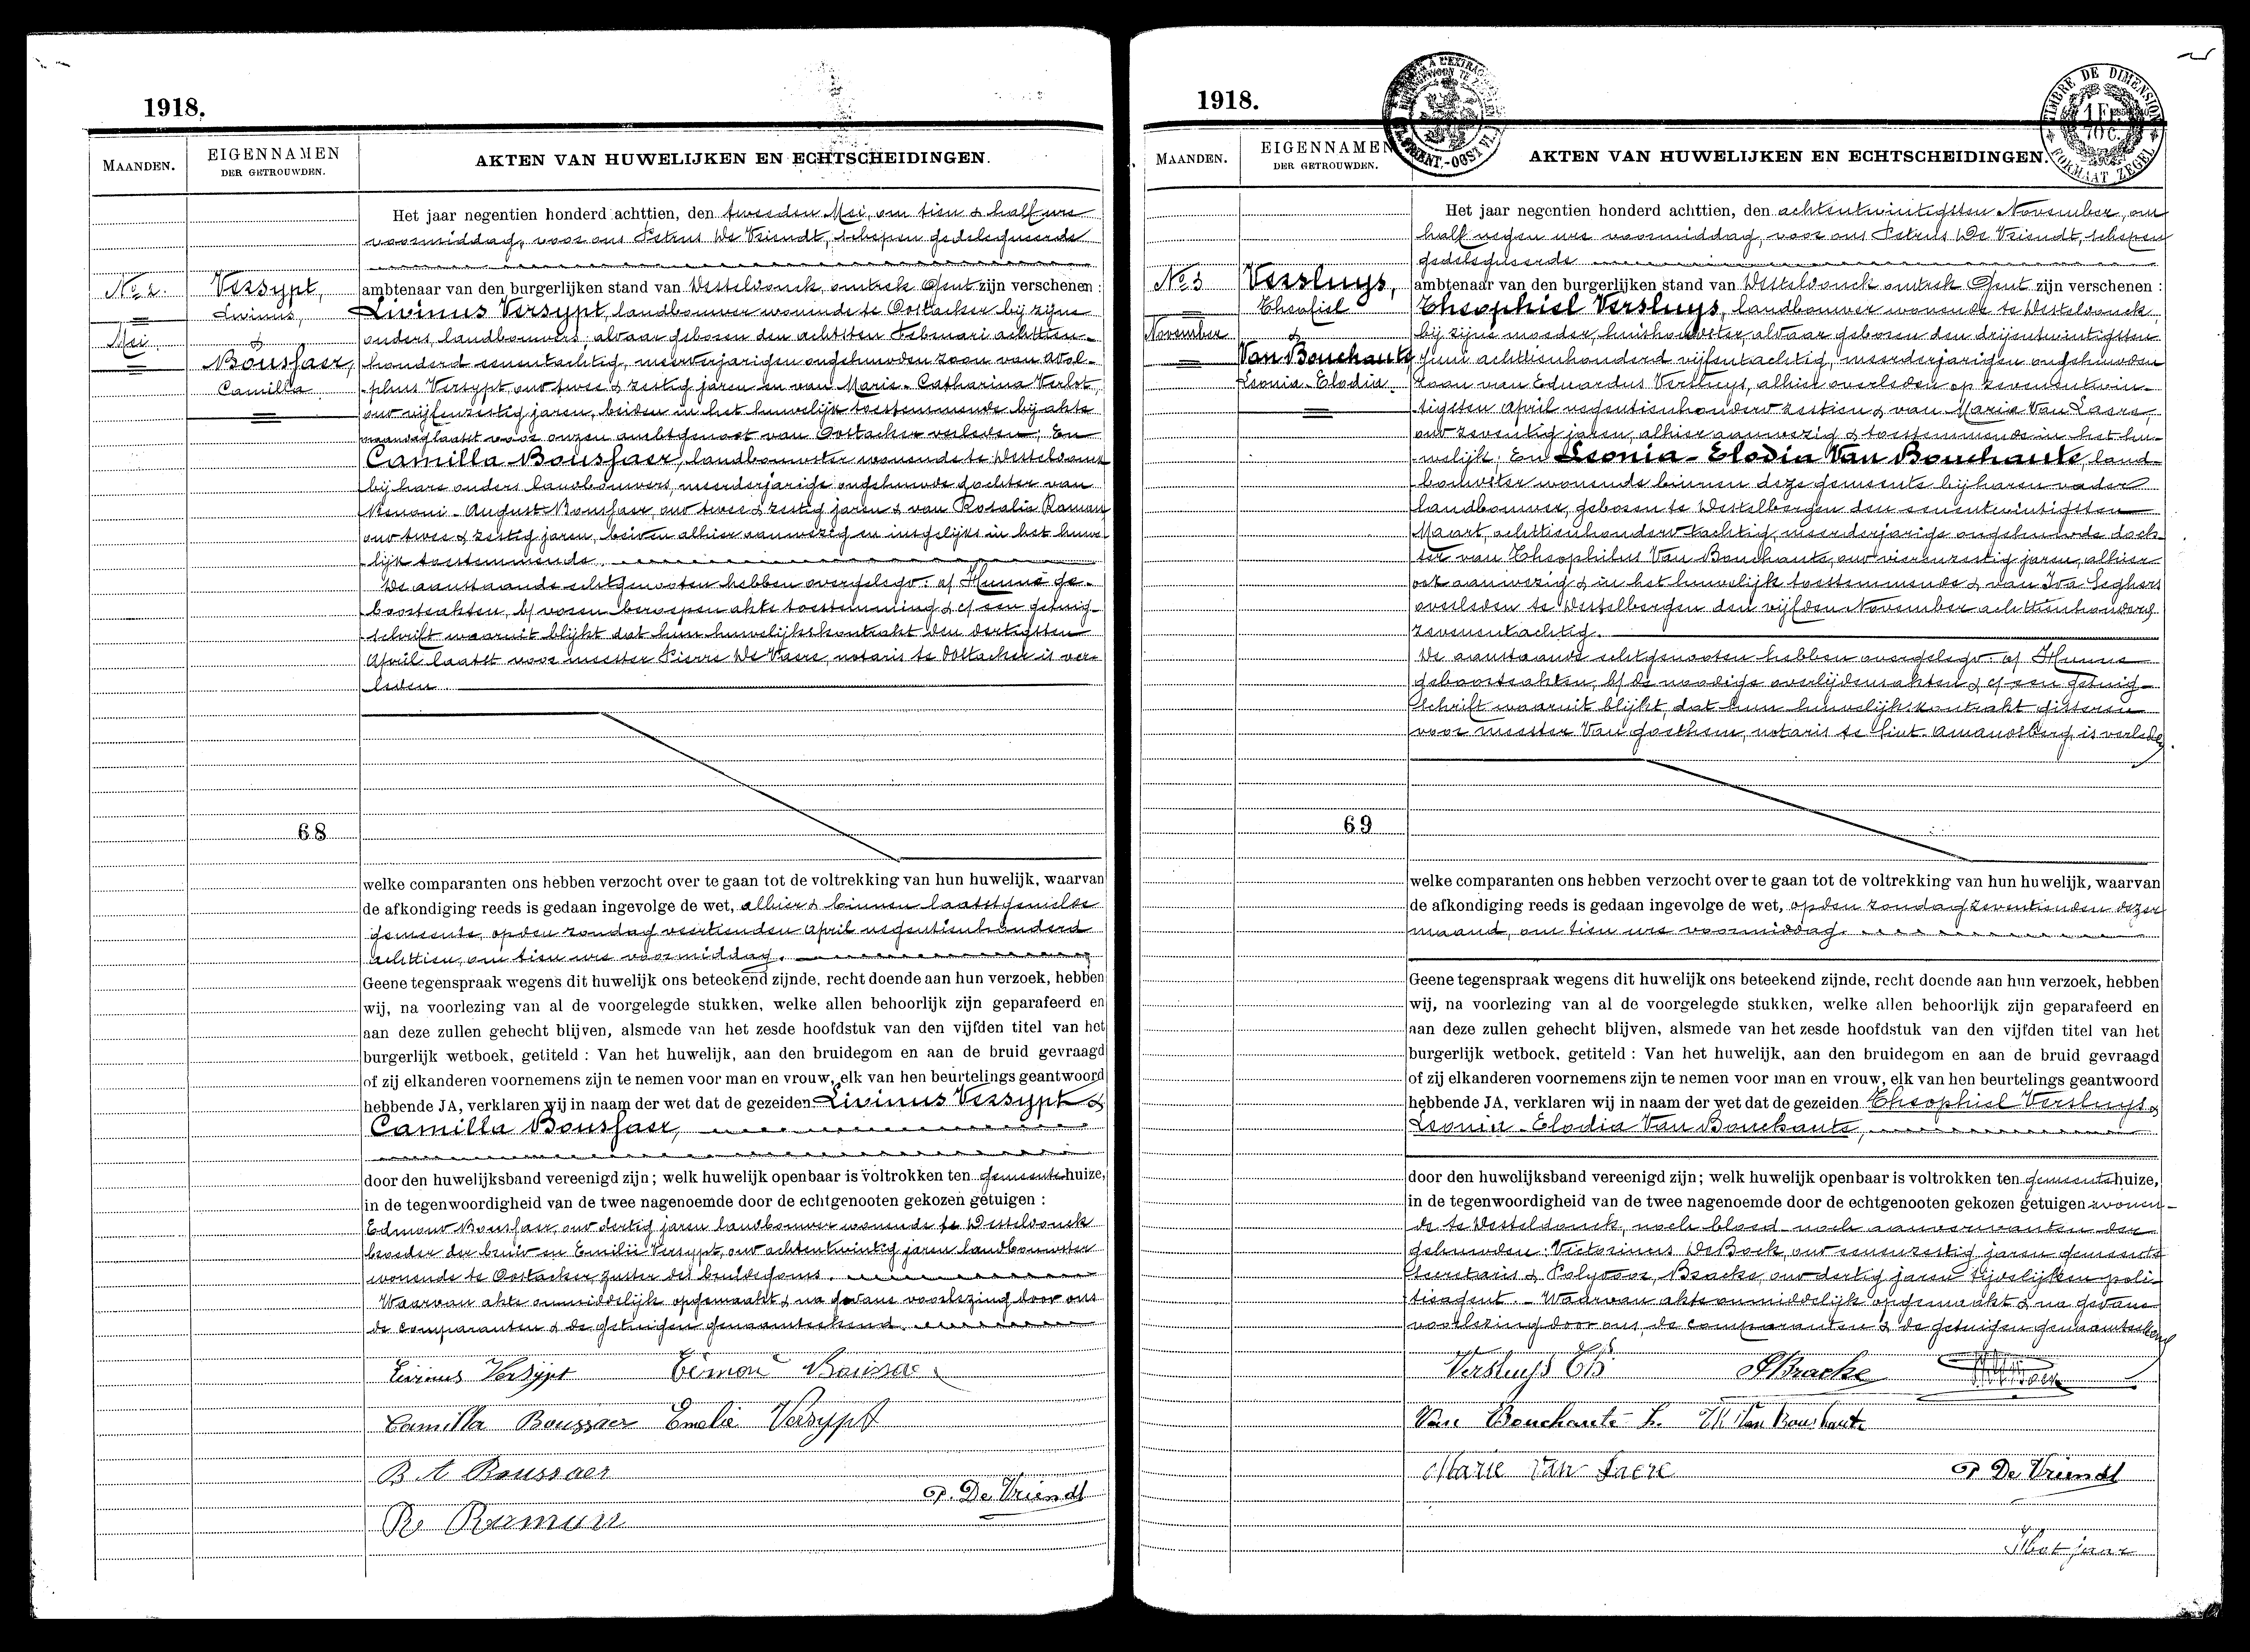 1918.
MAANDEN.
EIGENNAMEN
DER GETROUWDEN.
AKTEN VAN HUWELIJKEN EN ECHTSCHEIDINGEN.
Het jaar negentien honderd achttien, den tweeden Mei, om tien & half ure
voormiddag, voor ons Petrus De Vriendt, schepen gedelegueerde
No 2.
Mei.
Versypt,
Livinus,
&
Boussaer,
Camilla
ambtenaar van den burgerlijken stand van Desteldonck, omtrek Gent zijn verschenen :
Livinus Versypt, landbouwer wonende te Oostacker bij zijne
ouders, landbouwers, alwaar geboren den achtsten Februari achttien-
honderd eenentachtig, meerderjarigen ongehuwden zoon van Adol-
phus Versypt oud twee & zestig jaren en van Marie-Catharina Verlot,
oud vijfenzestig jaren, beiden in het huwelijk toestemmende bij akte
maandag laatst voor onzen ambtgenoot van Oostacker verleden; En
Camilla Boussaer, landbouwster wonende te Desteldonck
bij hare ouders landbouwers, meerderjarige ongehuwde dochter van
Benoni-August Boussaer, oud twee & zestig jaren & van Rosalia Raman
oud twee & zestig jaren, beiden alhier aanwezig en insgelijks in het huwe-
lijk toestemmende.
De aanstaande echtgenooten hebben overgelegd: a/ Hunne ge-
boorteakten, b/ voren beroepen akte toestemming & c/ een getuig-
schrift waaruit blijkt dat hun huwelijkskontrakt den dertigsten
April laatst voor meester Pierre De Vaere, notaris te Oostacker is ver-
leden.
68
welke comparanten ons hebben verzocht over te gaan tot de voltrekking van hun huwelijk, waarvan
de afkondiging reeds is gedaan ingevolge de wet, alhier & binnen laatstgemelde
gemeente, op den zondag veertienden April negentienhonderd
achttien, om tien ure voormiddag.
Geene tegenspraak wegens dit huwelijk ons beteekend zijnde, recht doende aan hun verzoek, hebben
wij, na voorlezing van al de voorgelegde stukken, welke allen behoorlijk zijn geparafeerd en
aan deze zullen gehecht blijven, alsmede van het zesde hoofdstuk van den vijfden titel van het
burgerlijk wetboek, getiteld : Van het huwelijk, aan den bruidegom en aan de bruid gevraagd
of zij elkanderen voornemens zijn te nemen voor man en vrouw, elk van hen beurtelings geantwoord
hebbende JA, verklaren wij in naam der wet dat de gezeiden Livinus Versypt &
Camilla Boussaer,
door den huwelijksband vereenigd zijn; welk huwelijk openbaar is voltrokken ten gemeentehuize,
in de tegenwoordigheid van de twee nagenoemde door de echtgenooten gekozen getuigen :
Edmond Boussaer, oud dertig jaren landbouwer wonende te Desteldonck
broeder der bruid en Emilie Versypt, oud achtentwintig jaren landbouwster
wonende te Oostacker, zuster des bruidegoms.
Waarvan akte onmiddelijk opgemaakt & na gedane voorlezing door ons
de comparanten & de getuigen genaamteekend.
Livinus Versypt Edmond Boussaer
Camilla Boussaer Emelie Versypt
B A Boussaer
P. De Vriendt
Ro Raman
1918.
TIMBRE DE DIMENSION
1 Fr
10 c.
FORMAAT ZEGEL
MAANDEN.
EIGENNAMEN
DER GETROUWDEN.
AKTEN VAN HUWELIJKEN EN ECHTSCHEIDINGEN.
Het jaar negentien honderd achttien, den achtentwintigsten November, om
half negen ure voormiddag, voor ons Petrus De Vriendt, schepen
gedelegueerde
No 3
November
Versluys,
Theofiel
&
Van Bouchaute
Leonia-Elodia
ambtenaar van den burgerlijken stand van Desteldonck omtrek Gent zijn verschenen :
Theophiel Versluys, landbouwer wonende te Desteldonck
bij zijne moeder, huishoudster, alwaar geboren den drijentwintigsten
Juni achttienhonderd vijfentachtig, meerderjarigen ongehuwden
zoon van Eduardus Versluys, alhier overleden op zevenentwin-
tigsten April negentienhonderd zestien & van Marie Van Laere,
oud zeventig jaren, alhier aanwezig & toestemmende in het hu-
welijk; En Leonia-Elodia Van Bouchaute, land-
bouwster wonende binnen deze gemeente bij haren vader
landbouwer, geboren te Destelbergen den eenentwintigsten
Maart achttienhonderd tachtig, meerderjarige ongehuwde doch-
ter van Theophilus Van Bouchaute, oud vierenzestig jaren, alhier
ook aanwezig & in het huwelijk toestemmende & van Iva Seghers
overleden te Destelbergen den vijfden November achttienhonderd
zevenentachtig.
De aanstaande echtgenooten hebben overgelegd: a/ Hunne
geboorteakten, b/ de noodige overlijdensakten & c/ een getuig-
schrift waaruit blijkt, dat hun huwelijkskontrakt gisteren
voor meester Van Goethem, notaris te Sint-Amandsberg is verleden.
69
welke comparanten ons hebben verzocht over te gaan tot de voltrekking van hun huwelijk, waarvan
de afkondiging reeds is gedaan ingevolge de wet, op den zondag zeventienden dezer
maand, om tien ure voormiddag.
Geene tegenspraak wegens dit huwelijk ons beteekend zijnde, recht doende aan hun verzoek, hebben
wij, na voorlezing van al de voorgelegde stukken, welke allen behoorlijk zijn geparafeerd en
aan deze zullen gehecht blijven, alsmede van het zesde hoofdstuk van den vijfden titel van het
burgerlijk wetboek, getiteld : Van het huwelijk, aan den bruidegom en aan de bruid gevraagd
of zij elkanderen voornemens zijn te nemen voor man en vrouw, elk van hen beurtelings geantwoord
hebbende JA, verklaren wij in naam der wet dat de gezeiden Theophiel Versluys &
Leonia-Elodia Van Bouchaute,
door den huwelijksband vereenigd zijn; welk huwelijk openbaar is voltrokken ten gemeentehuize,
in de tegenwoordigheid van de twee nagenoemde door de echtgenooten gekozen getuigen wonen-
de te Desteldonck, noch bloed- noch aanverwanten der
gehuwden: Victorinus De Bock, oud eenenzestig jaren gemeente
secretaris & Polydoor Bracke, oud dertig jaren tijdelijken poli-
tieagent. - Waarvan akte onmiddelijk opgemaakt & na gedane
voorlezing door ons, de comparanten & de getuigen genaamteekend
Versluys Th P Bracke
Van Bouchaute L. Th Van Bouchaute
Marie Van Laere P De Vriendt
Het jaar